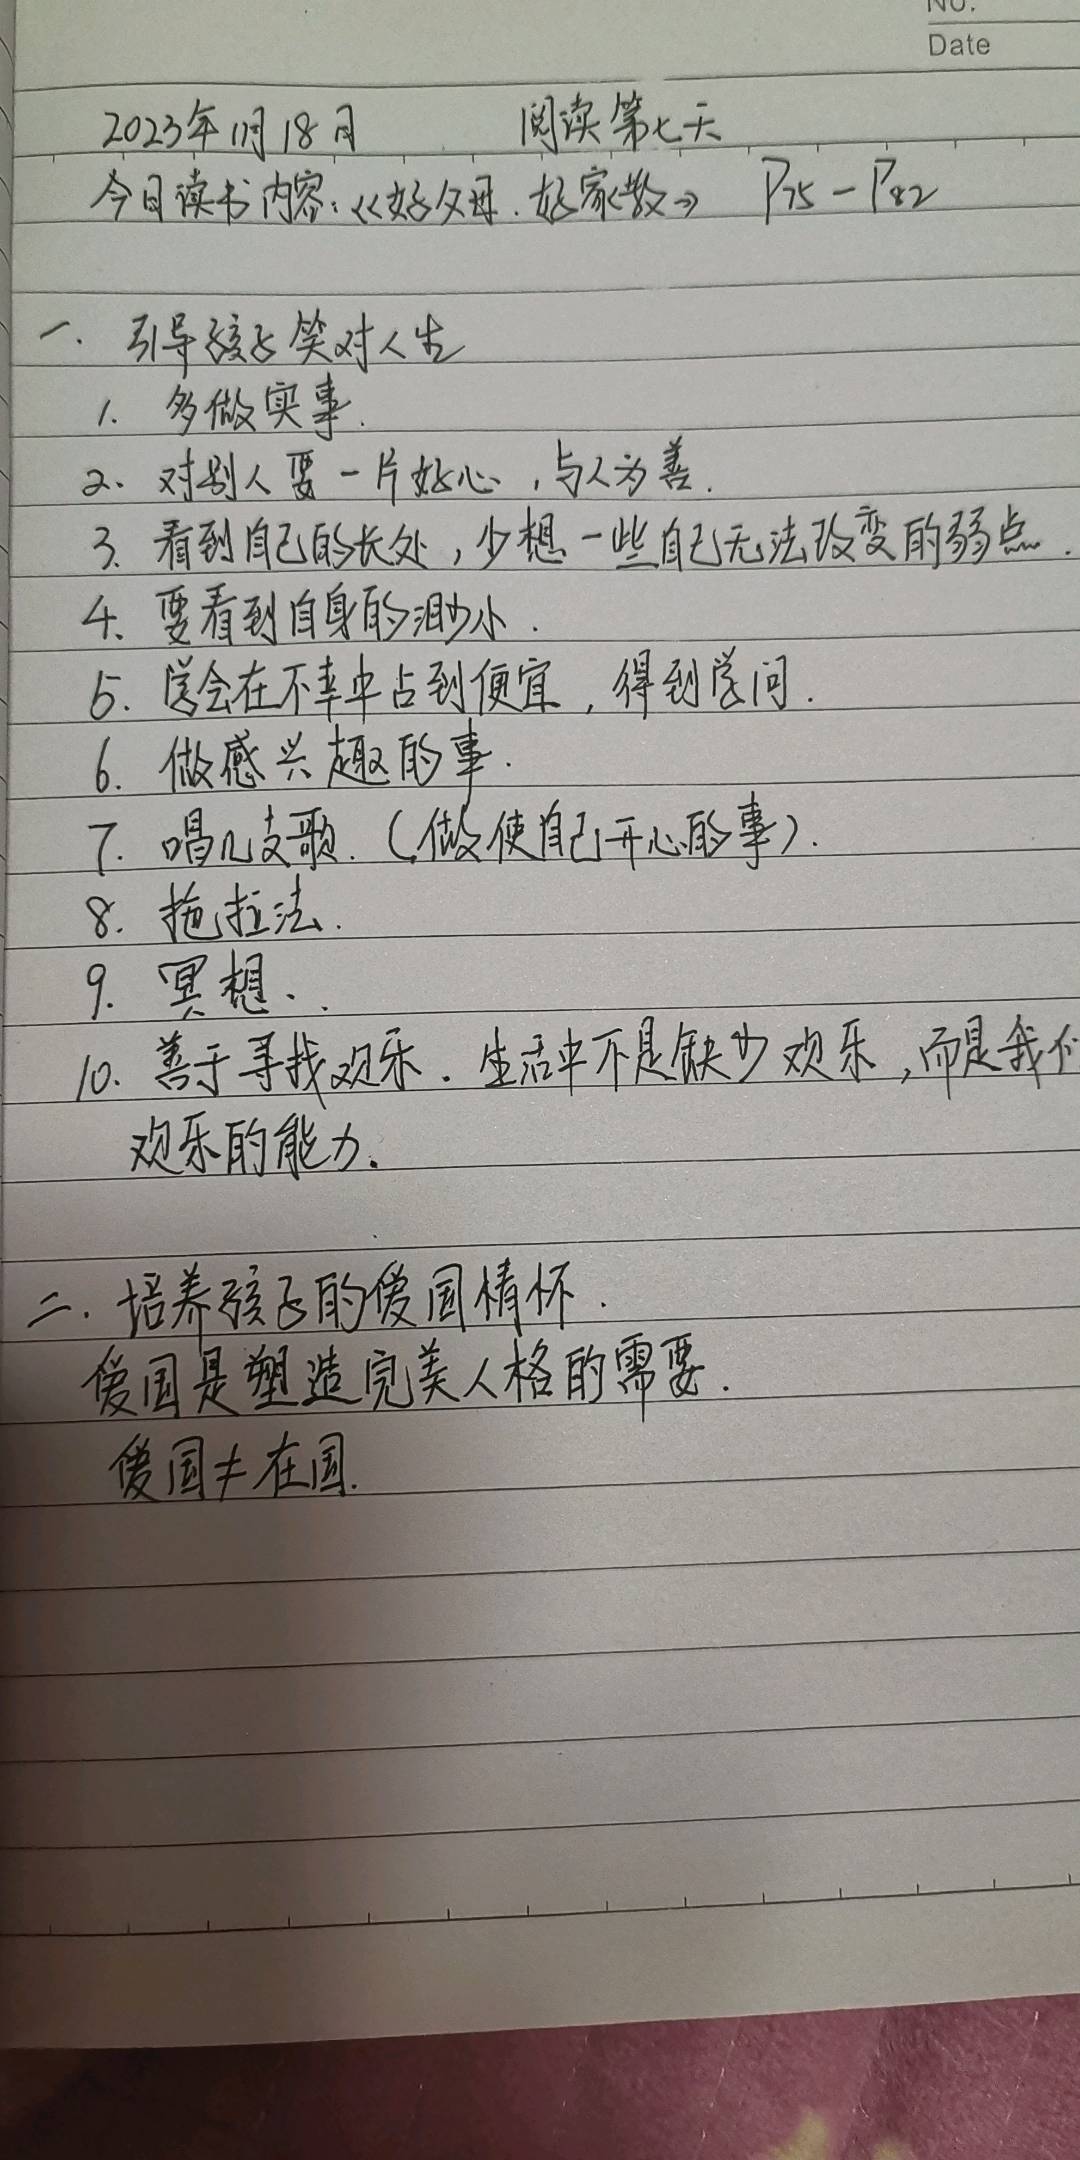 No.
Date
2023年11月18日 阅读第七天
今日读书内容:《好父母.好家教》 P75-P82
一. 引导孩子笑对人生
1. 多做实事.
2. 对别人要一片好心,与人为善.
3. 看到自己的长处,少想一些自己无法改变的弱点.
4. 要看到自身的渺小.
5. 学会在不幸中占到便宜,得到学问.
6. 做感兴趣的事.
7. 唱几支歌.(做使自己开心的事).
8. 拖拉法.
9. 冥想.
10. 善于寻找欢乐.生活中不是缺少欢乐,而是我们
欢乐的能力.
二. 培养孩子的爱国情怀.
爱国是塑造完美人格的需要.
爱国≠在国.